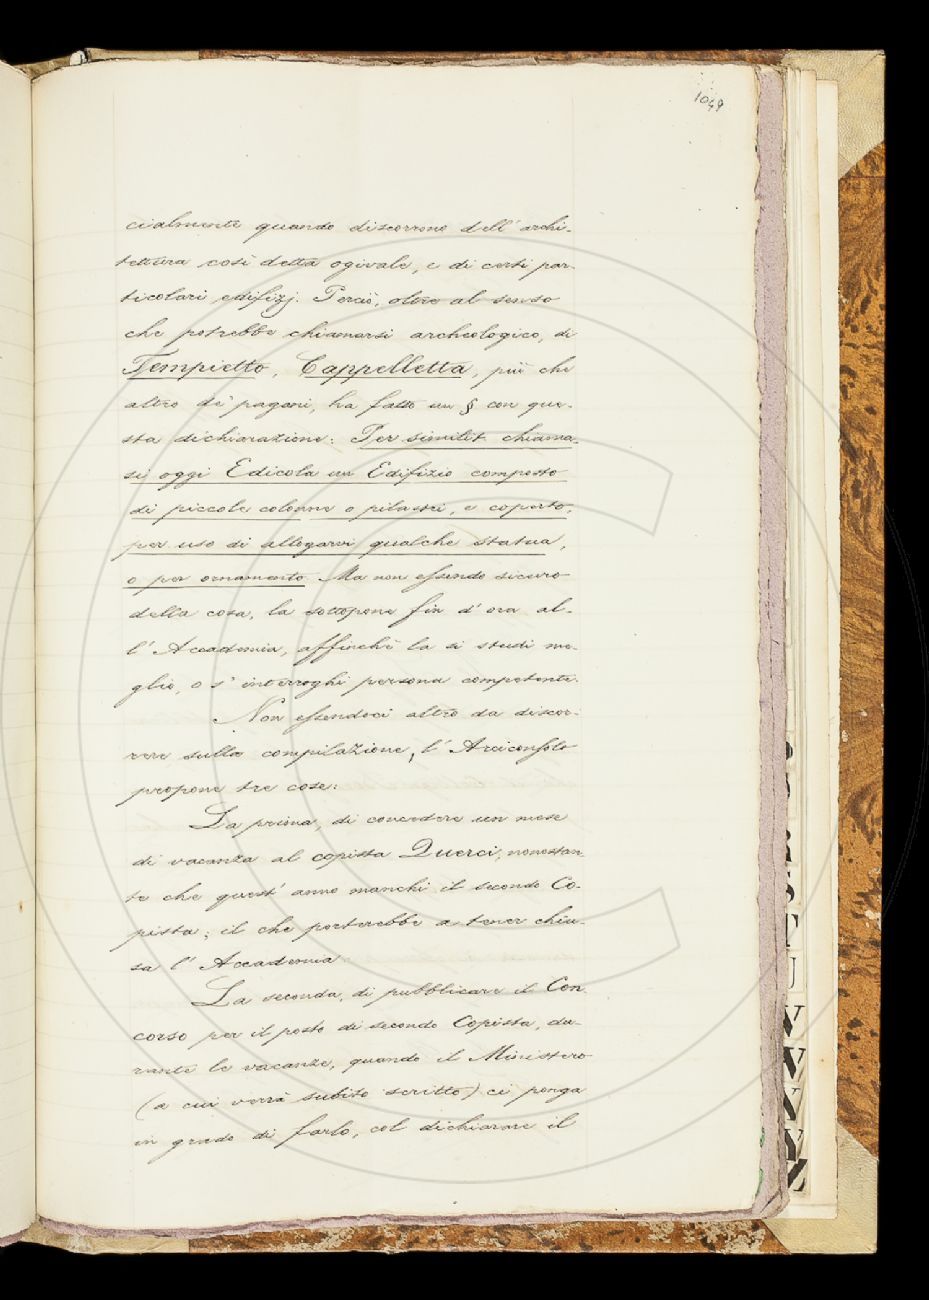 1049
cialmente quando discorrono dell' archi-
tettura così detta ogivale, e di certi par-
ticolari edifizj. Perciò, oltre al senso
che potrebbe chiamarsi archeologico, di
Tempietto, Cappelletta, più che
altro de' pagani, ha fatto un § con que-
sta dichiarazione: Per similit. chiama-
si oggi Edicola un Edifizio composto
di piccole colonne o pilastri, e coperto,
per uso di allogarvi qualche statua,
o per ornamento. Ma non essendo sicuro
della cosa, la sottopone fin d' ora al-
l' Accademia, affinchè la si studi me-
glio, o s' interroghi persona competente.
Non essendoci altro da discor-
rere sulla compilazione, l' Arciconsolo
propone tre cose:
La prima, di concedere un mese
di vacanza al copista Querci, nonostan-
te che quest' anno manchi il secondo Co-
pista; il che porterebbe a tener chiu-
sa l' Accademia.
La seconda, di pubblicare il Con-
corso per il posto di secondo Copista, du-
rante le vacanze, quando il Ministero
(a cui verrà subito scritto) ci ponga
in grado di farlo, col dichiarare il
R
S
T
U
V
W
X
Y
Z